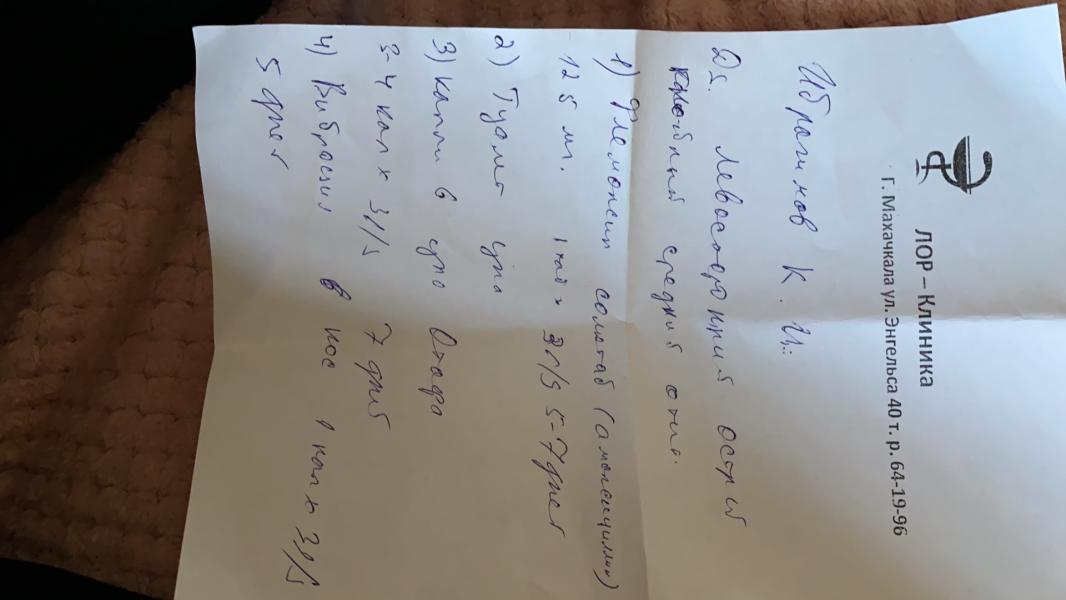 ЛОР – Клиника
Г. Махачкала ул. Энгельса 40 т. р. 64-19-96
Ибрагимов К. И.:
Ds. Левосторонний острый
средний отит.
1) Флемоксин солютаб (амоксициллин)
125 мг. 1 таб x 3 r/s 5-7 дней
2) Туалет уха
3) Капли в ухо Отофа
3-4 кап x 3 r/s 7 дней
4) Виброцил в нос 1 кап x 3 r/s
5 дней